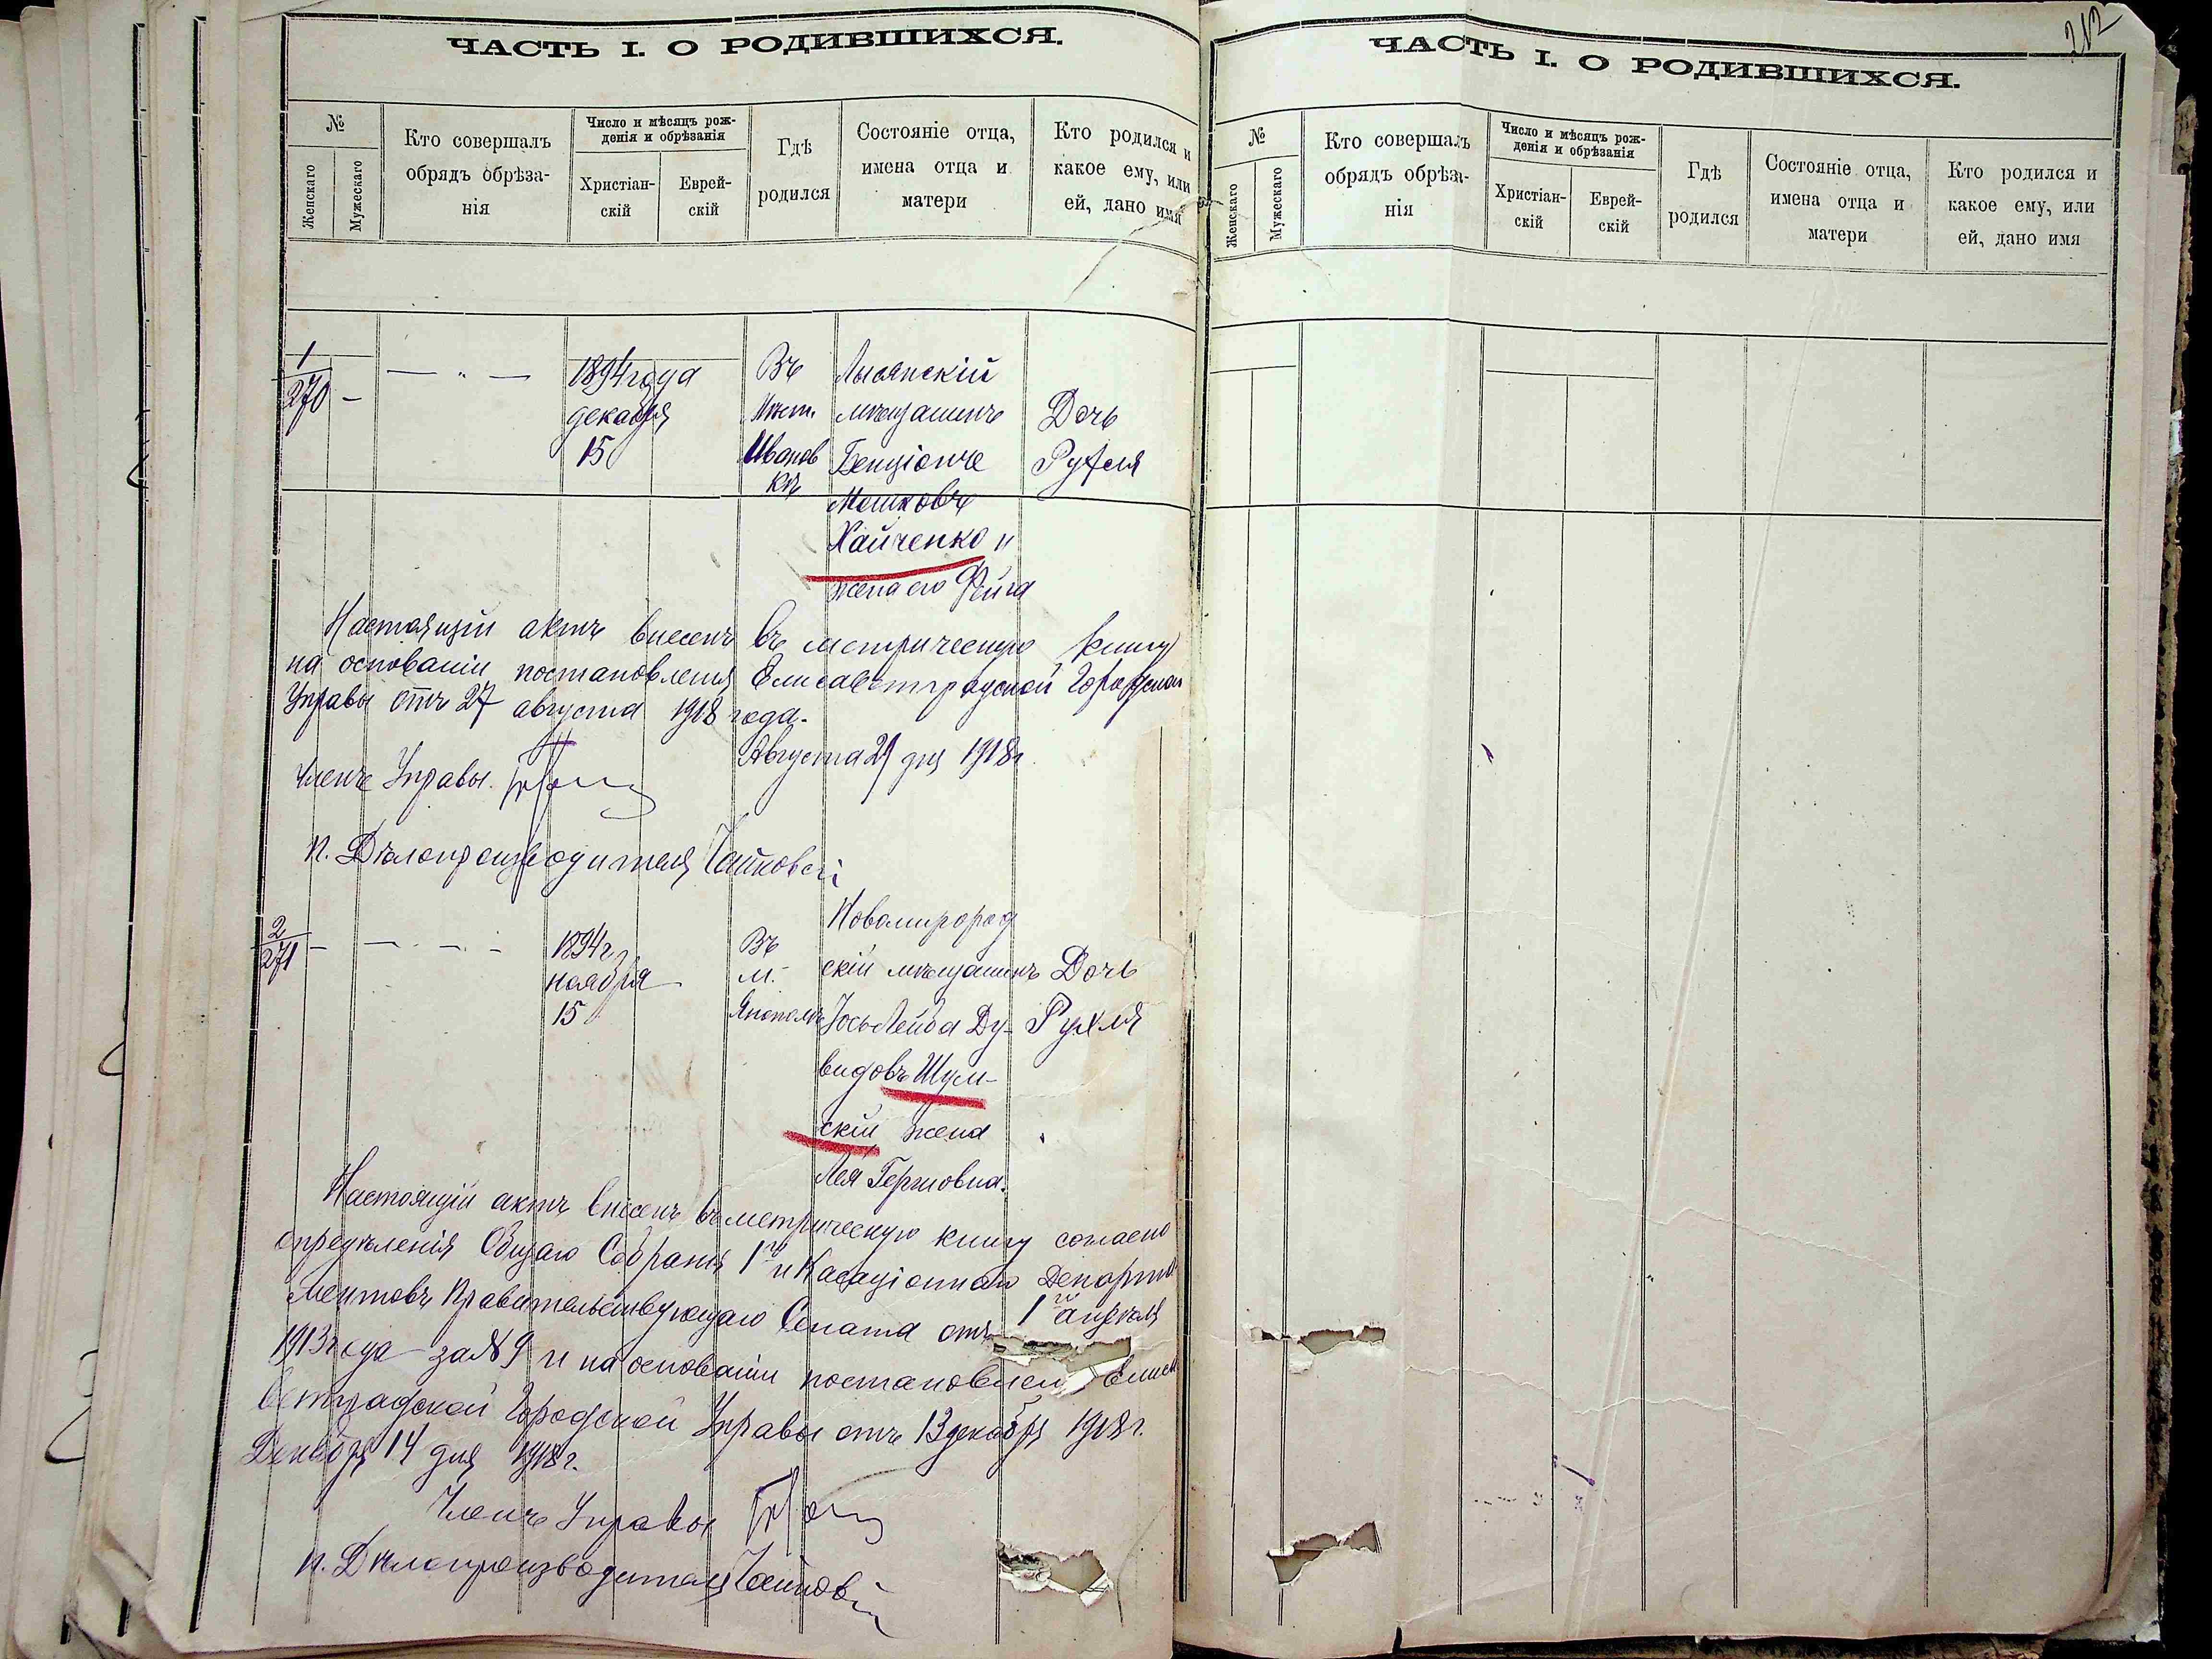 ЧАСТЬ I. О РОДИВШИХСЯ.
№
Женскаго
Мужескаго
Кто совершалъ
обрядъ обрѣза-
нія
Число и мѣсяцъ рож-
денія и обрѣзанія
Христіан-
скій
Еврей-
скій
Гдѣ
родился
Состояніе отца,
имена отца и
матери
Кто родился и
какое ему, или
ей, дано имя
1
270 -
— " —
1894 года
декабря
15
Въ
Мѣст.
Иванов
кѣ
Лысянскій
мѣщанинъ
Бенціонъ
Мошковъ
Хайченко и
жена его Фейга
Дочь
Рухля
Настоящій актъ внесенъ въ метрическую книгу
на основаніи постановленія Елисаветградской Городской
Управы отъ 27 августа 1918 года.
Августа 27 дня 1918 г.
Членъ Управы
п. Дѣлопроизводителя
2
271 -
1894 г.
ноября
15
Въ
м.
Новомиргород
скій мѣщанинъ
Іось Лейба Ду-
видовъ Шум-
скій жена
Лея Гершовна.
Дочь
Рухля
Настоящій актъ внесенъ въ метрическую книгу согласно
опредѣленія Общаго Собранія 1го и Кассаціоннаго Департа
ментовъ Правительствующаго Сената отъ 1го апрѣля
1913 года за № 9 и на основаніи постановлен Елиса
ветградской Городской Управы отъ 13 декабря 1918 г.
Декабря 14 дня 1918 г.
Членъ Управы
п. Дѣлопроизводителя
212
ЧАСТЬ I. О РОДИВШИХСЯ.
№
Женскаго
Мужескаго
Кто совершалъ
обрядъ обрѣза-
нія
Число и мѣсяцъ рож-
денія и обрѣзанія
Христіан-
скій
Еврей-
скій
Гдѣ
родился
Состояніе отца,
имена отца и
матери
Кто родился и
какое ему, или
ей, дано имя